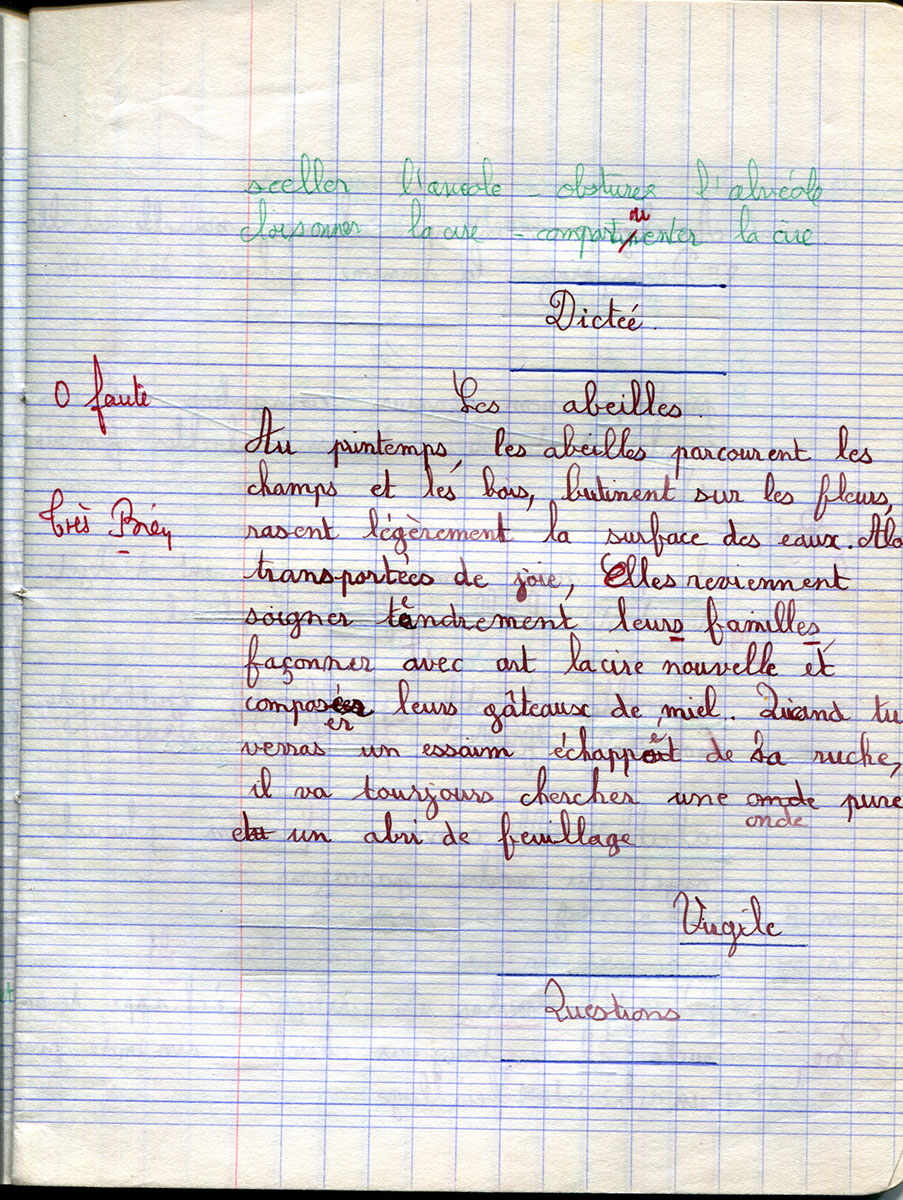 sceller l'avéole - obsturer l'alvéole
cloisonner la cire - compartimenter la cire
Dicteé.
0 faute
Les abeilles.
Au printemps, les abeilles parcourent les
champs et les bois, butinent sur les fleurs,
Très Bien
rasent légèrement la surface des eaux. Alo
transportées de joie, Elles reviennent
soigner tendrement leurs familles,
façonner avec art la cire nouvelle et
composer leurs gâteaux de miel. Quand tu
er
verras un essaim échappé de sa ruche,
il va toujours chercher une onde pure
onde
et un abri de feuillage
Virgile
Questions